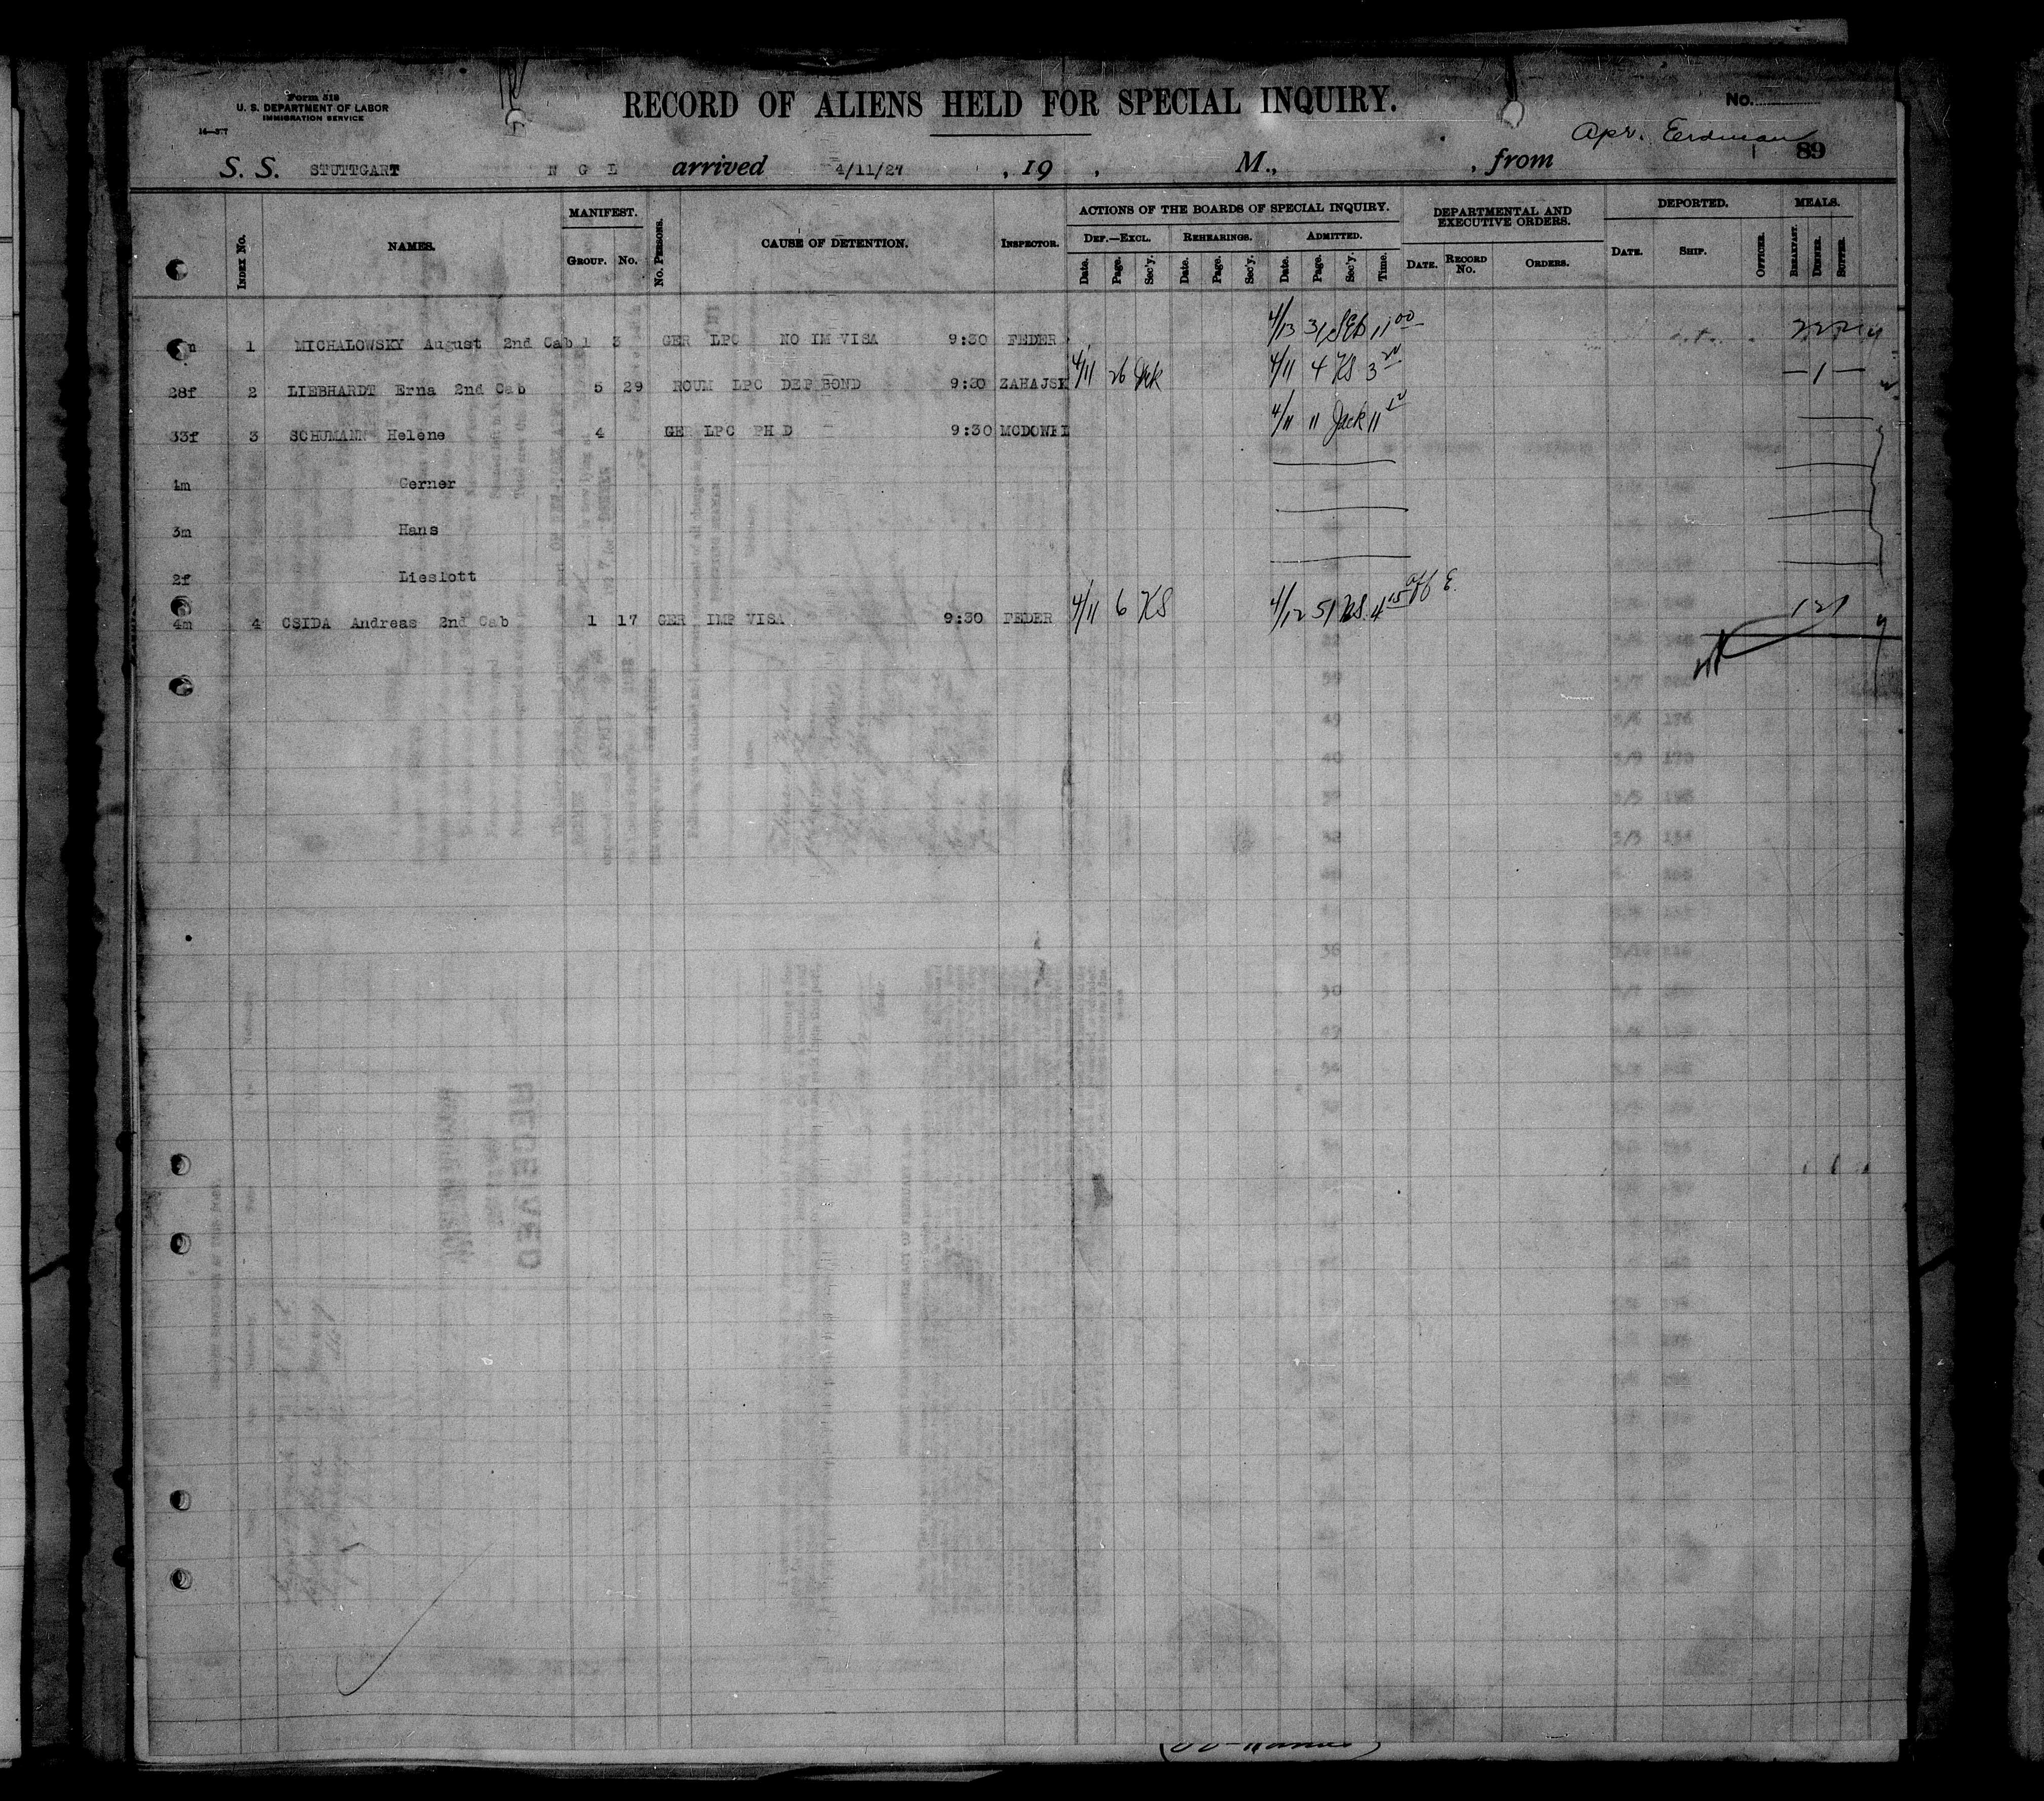 Form 518
U. S. DEPARTMENT OF LABOR
IMMIGRATION SERVICE
RECORD OF ALIENS HELD FOR SPECIAL INQUIRY.
No.
Apr. Erdman
89
S. S. STUTTGART N G L arrived 4/11/27 , 19 , M., , from
INDEX No. NAMES. MANIFEST. GROUP. No. No. PERSONS. CAUSE OF DETENTION. INSPECTOR. ACTIONS OF THE BOARDS OF SPECIAL INQUIRY. DEPARTMENTAL AND EXECUTIVE ORDERS. DEPORTED. MEALS.
DEF.—EXCL. REHEARINGS. ADMITTED.
Date. Page. Sec'y. Date. Page. Sec'y. Date. Page. Sec'y. Time. DATE. RECORD No. ORDERS. DATE. SHIP. OFFICER. BREAKFAST. DINNER. SUPPER.
1 MICHALOWSKY August 2nd Cab 1 3 GER LPC NO IM VISA 9:30 FEDER 4/13 31 11 00
28f 2 LIEBHARDT Erna 2nd Cab 5 29 ROUM LPC DEP BOND 9:30 ZAHAJSK 4/11 26 Jck 4/11 4 KS 3 20 — 1 —
33f 3 SCHUMANN Helene 4 GER LPC PH D 9:30 MCDONEL 4/11 11 Jack 11
4m Gerner
3m Hans
2f Lieslott
4m 4 CSIDA Andreas 2nd Cab 1 17 GER IMP VISA 9:30 FEDER 4/11 6 KS 4/12 51 KS. 4 15 1 2 1